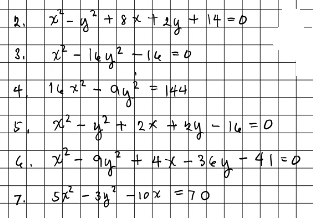 2. x² - y² + 8x + 2y + 14 = 0
3. x² - 16y² - 16 = 0
4. 16x² - 9y² = 144
5. x² - y² + 2x + 2y - 16 = 0
6. x² - 9y² + 4x - 36y - 41 = 0
7. 5x² - 3y² - 10x = 70